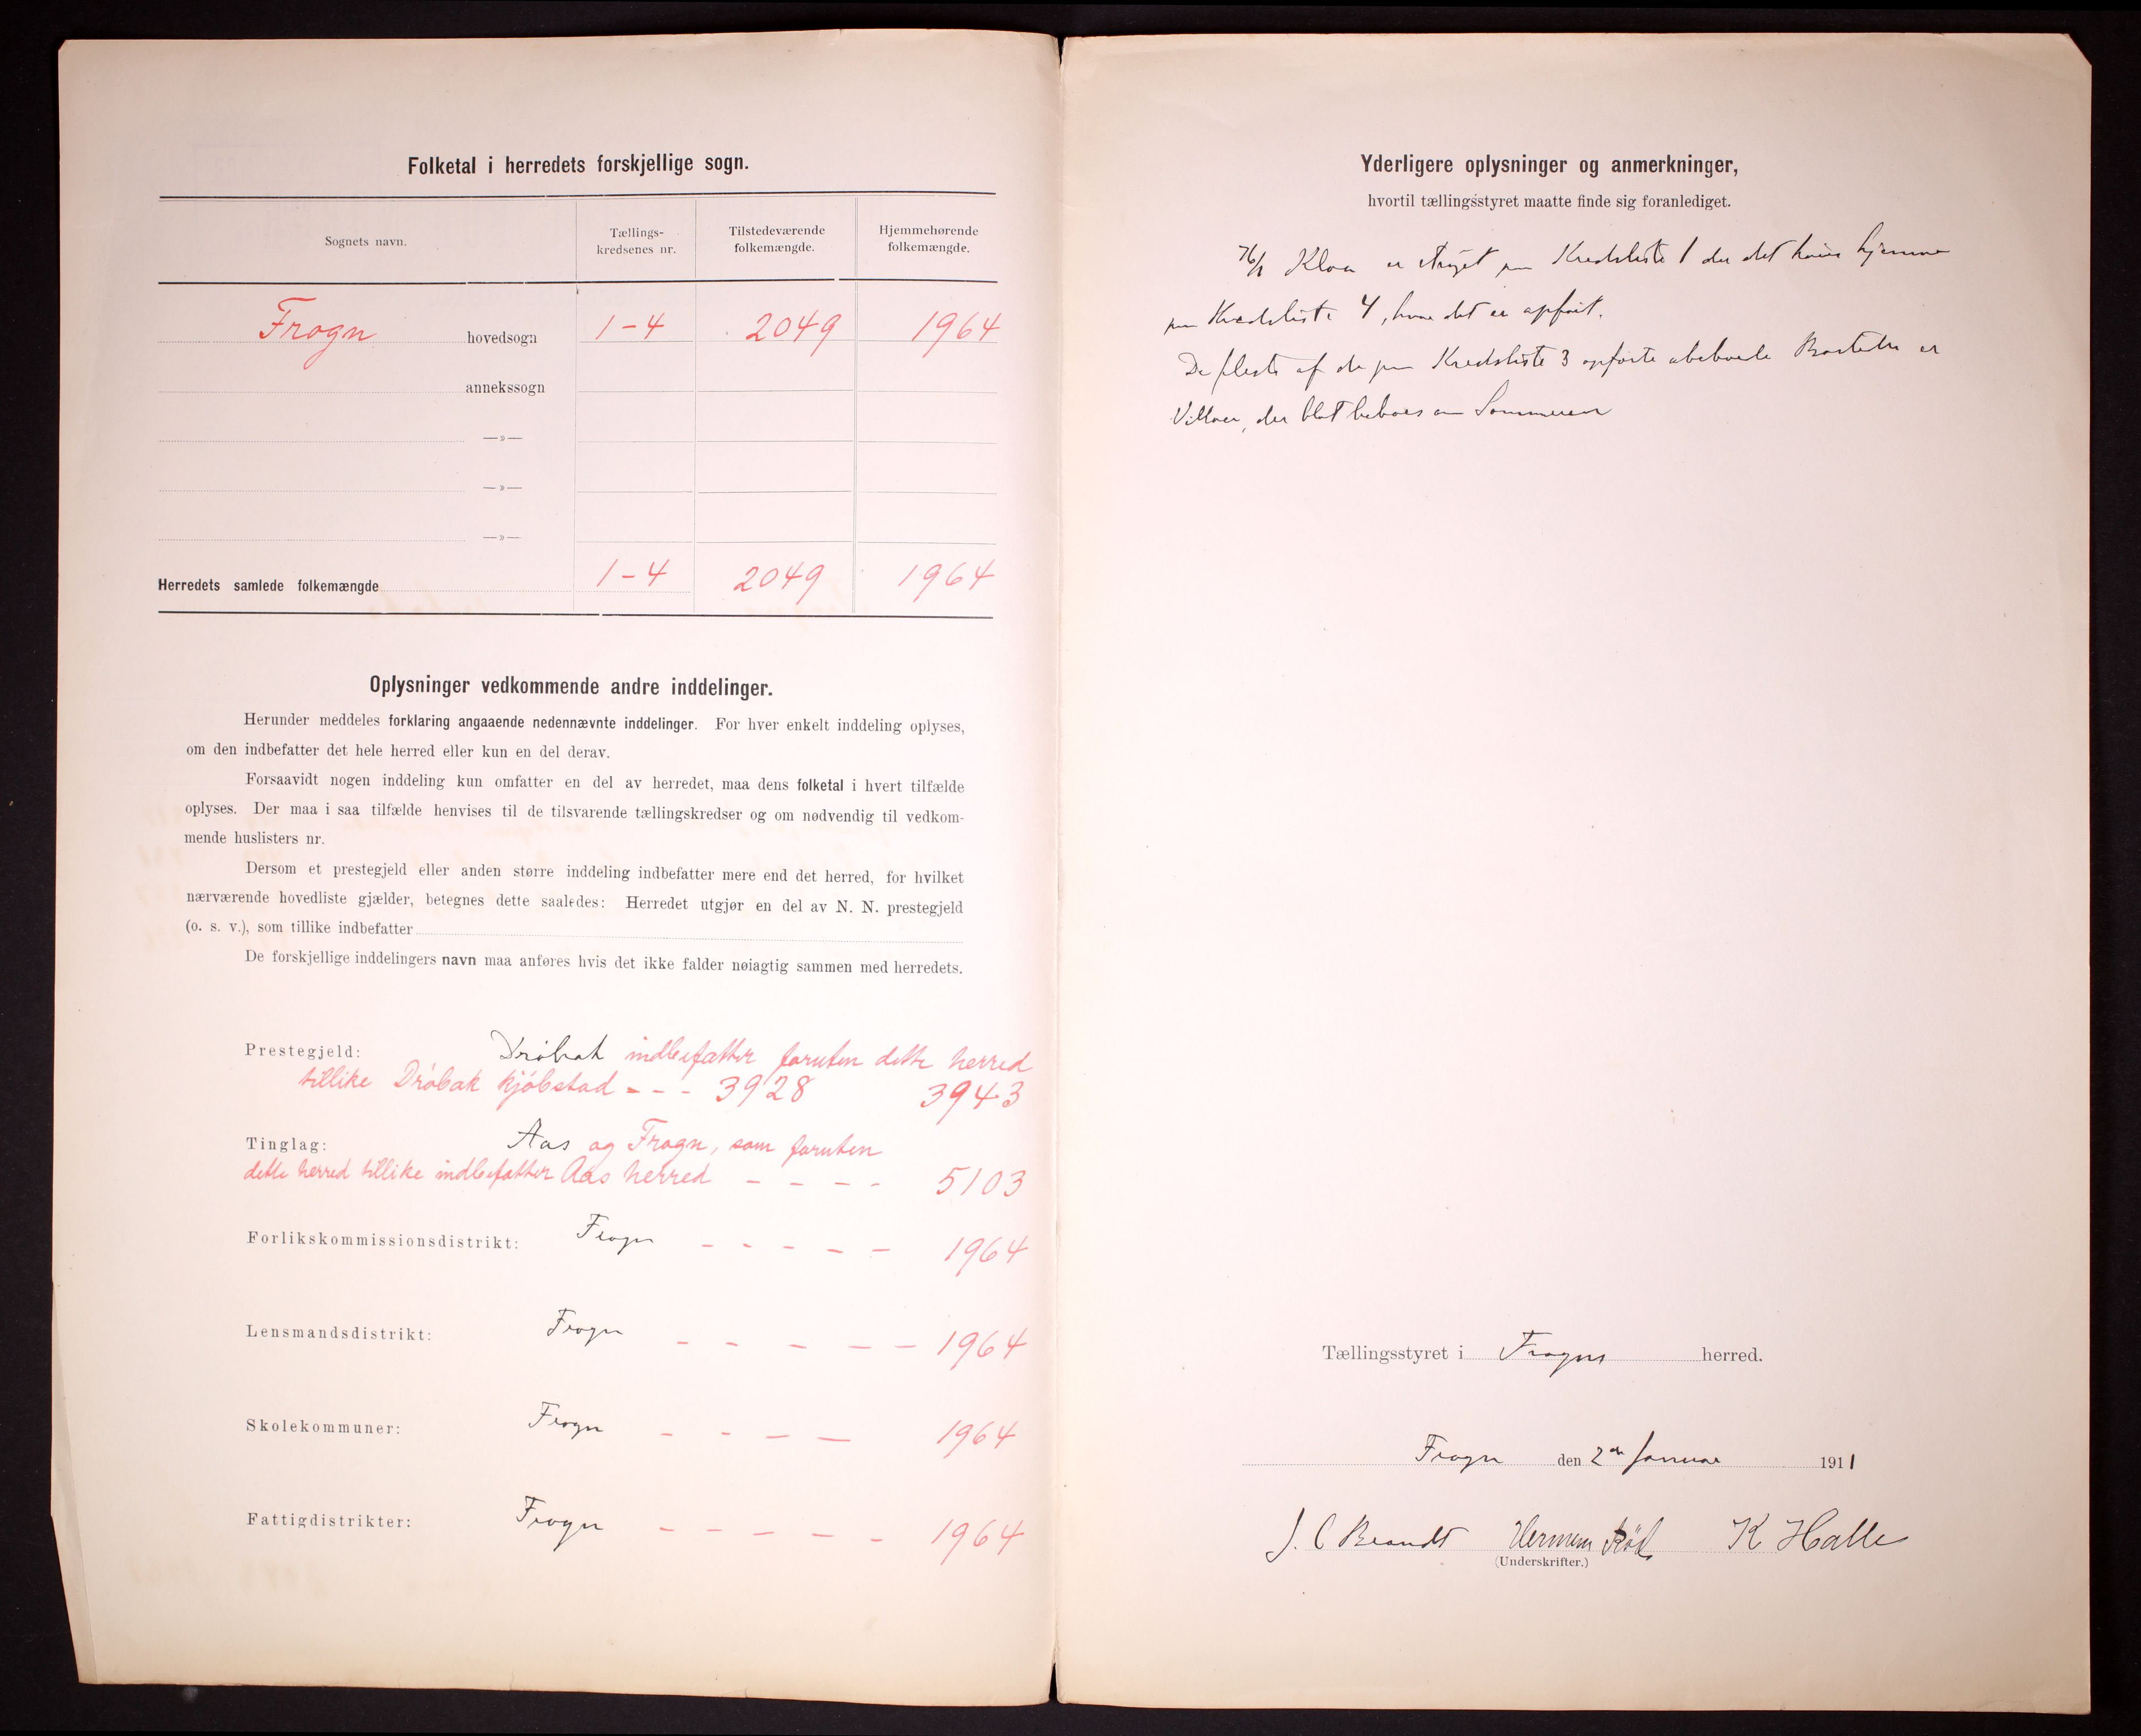 Folketal i herredets forskjellige sogn.
Sognets navn.
Tællings-
kredsenes nr.
Tilstedeværende
folkemængde.
Hjemmehørende
folkemængde.
Frogn hovedsogn 1-4 2049 1964
annekssogn
—»—
—»—
—»—
Herredets samlede folkemængde 1-4 2049 1964
Oplysninger vedkommende andre inddelinger.
Herunder meddeles forklaring angaaende nedennævnte inddelinger. For hver enkelt inddeling oplyses,
om den indbefatter det hele herred eller kun en del derav.
Forsaavidt nogen inddeling kun omfatter en del av herredet, maa dens folketal i hvert tilfælde
oplyses. Der maa i saa tilfælde henvises til de tilsvarende tællingskredser og om nødvendig til vedkom-
mende huslisters nr.
Dersom et prestegjeld eller anden større inddeling indbefatter mere end det herred, for hvilket
nærværende hovedliste gjælder, betegnes dette saaledes: Herredet utgjør en del av N. N. prestegjeld
(o. s. v.), som tillike indbefatter
De forskjellige inddelingers navn maa anføres hvis det ikke falder nøiagtig sammen med herredets.
Prestegjeld: Drøbak indbefatter foruten dette herred
tillike Drøbak kjøbstad - - - 3928 3943
Tinglag: Aas og Frogn, som foruten
dette herred tillike indbefatter Aas herred - - - - 5103
Forlikskommissionsdistrikt: Frogn - - - - - 1964
Lensmandsdistrikt: Frogn - - - - - 1964
Skolekommuner: Frogn - - - - 1964
Fattigdistrikter: Frogn - - - - - 1964
Yderligere oplysninger og anmerkninger,
hvortil tællingsstyret maatte finde sig foranlediget.
76/1 Kloa er strøget paa Kredsliste 1 da det hører hjemme
paa Kredsliste 4, hvor det er opført.
De fleste af de paa Kredsliste 3 opførte ubeboede Bosteder er
Villaer, der blot beboes om Sommeren
Tællingsstyret i Frogns herred.
Frogn den 2den Januar 1911
J. C Brandt Herman K Halle
(Underskrifter.)